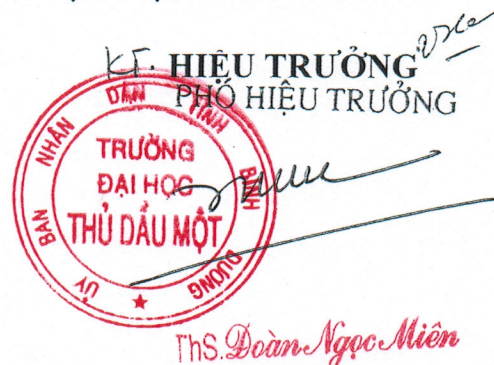 KT. HIỆU TRƯỞNG
PHÓ HIỆU TRƯỞNG
ỦY BAN NHÂN DÂN TỈNH BÌNH DƯƠNG
TRƯỜNG
ĐẠI HỌC
THỦ DẦU MỘT
ThS. Đoàn Ngọc Miên